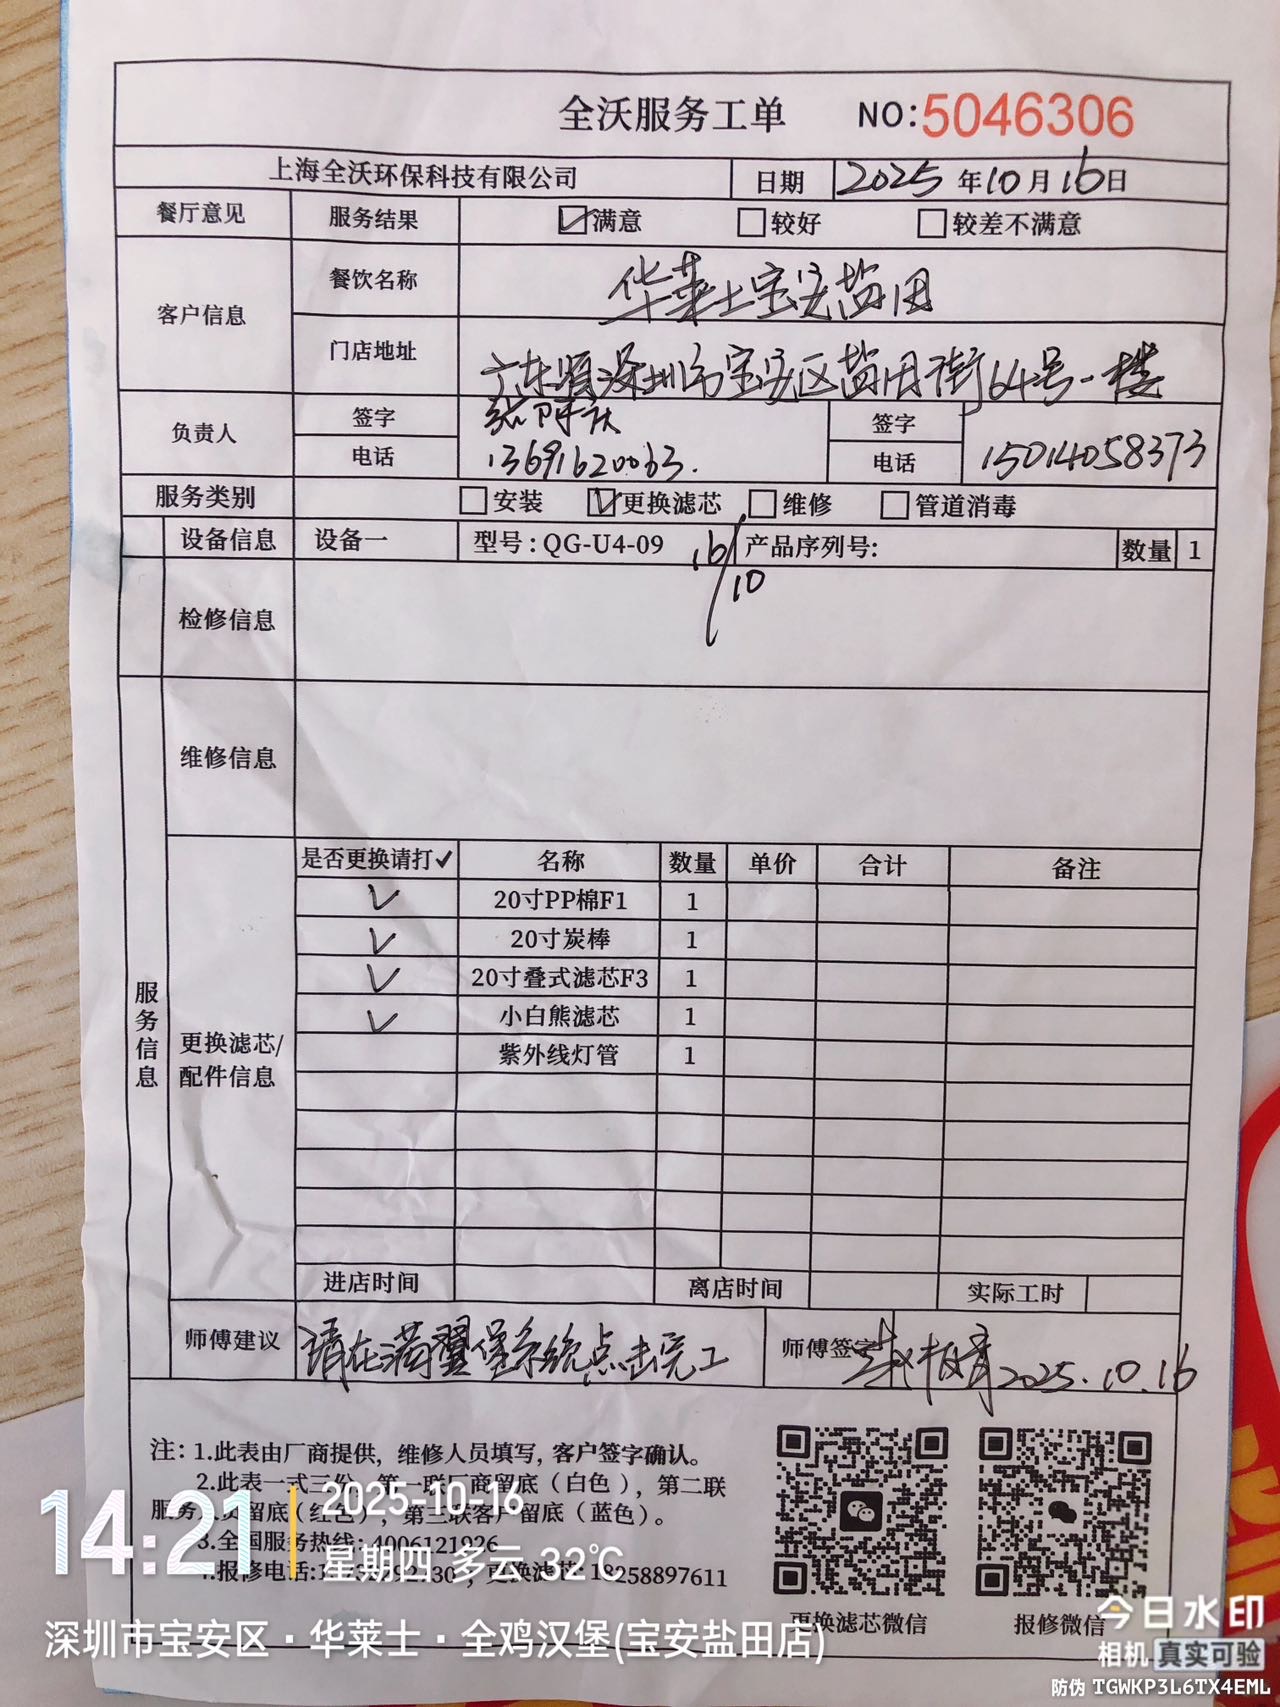 全沃服务工单 NO:5046306
上海全沃环保科技有限公司 日期 2025年10月16日
餐厅意见 服务结果 ☑满意 □较好 □较差不满意
客户信息 餐饮名称 华莱士宝安盐田
门店地址 广东省深圳市宝安区盐田街64号一楼
负责人 签字 签字
电话 13691620063. 电话 15014058373
服务类别 □安装 ☑更换滤芯 □维修 □管道消毒
设备信息 设备一 型号:QG-U4-09 产品序列号: 数量 1
16/10
检修信息
维修信息
服务信息
更换滤芯/配件信息
是否更换请打✓ 名称 数量 单价 合计 备注
✓ 20寸PP棉F1 1
✓ 20寸炭棒 1
✓ 20寸叠式滤芯F3 1
✓ 小白熊滤芯 1
紫外线灯管 1
进店时间 离店时间 实际工时
师傅建议 请在满翼堡系统点击完工 师傅签字 2025.10.16
注: 1.此表由厂商提供，维修人员填写，客户签字确认。
2.此表一式三份，第一联厂商留底（白色），第二联
服务人员留底（红色），第三联客户留底（蓝色）。
3.全国服务热线: 4006121926
报修电话: 更换滤芯: 18258897611
更换滤芯微信 报修微信
14:21 2025-10-16
星期四 多云 32℃
深圳市宝安区·华莱士·全鸡汉堡(宝安盐田店)
今日水印
相机 真实可验
防伪 TGWKP3L6TX4EML